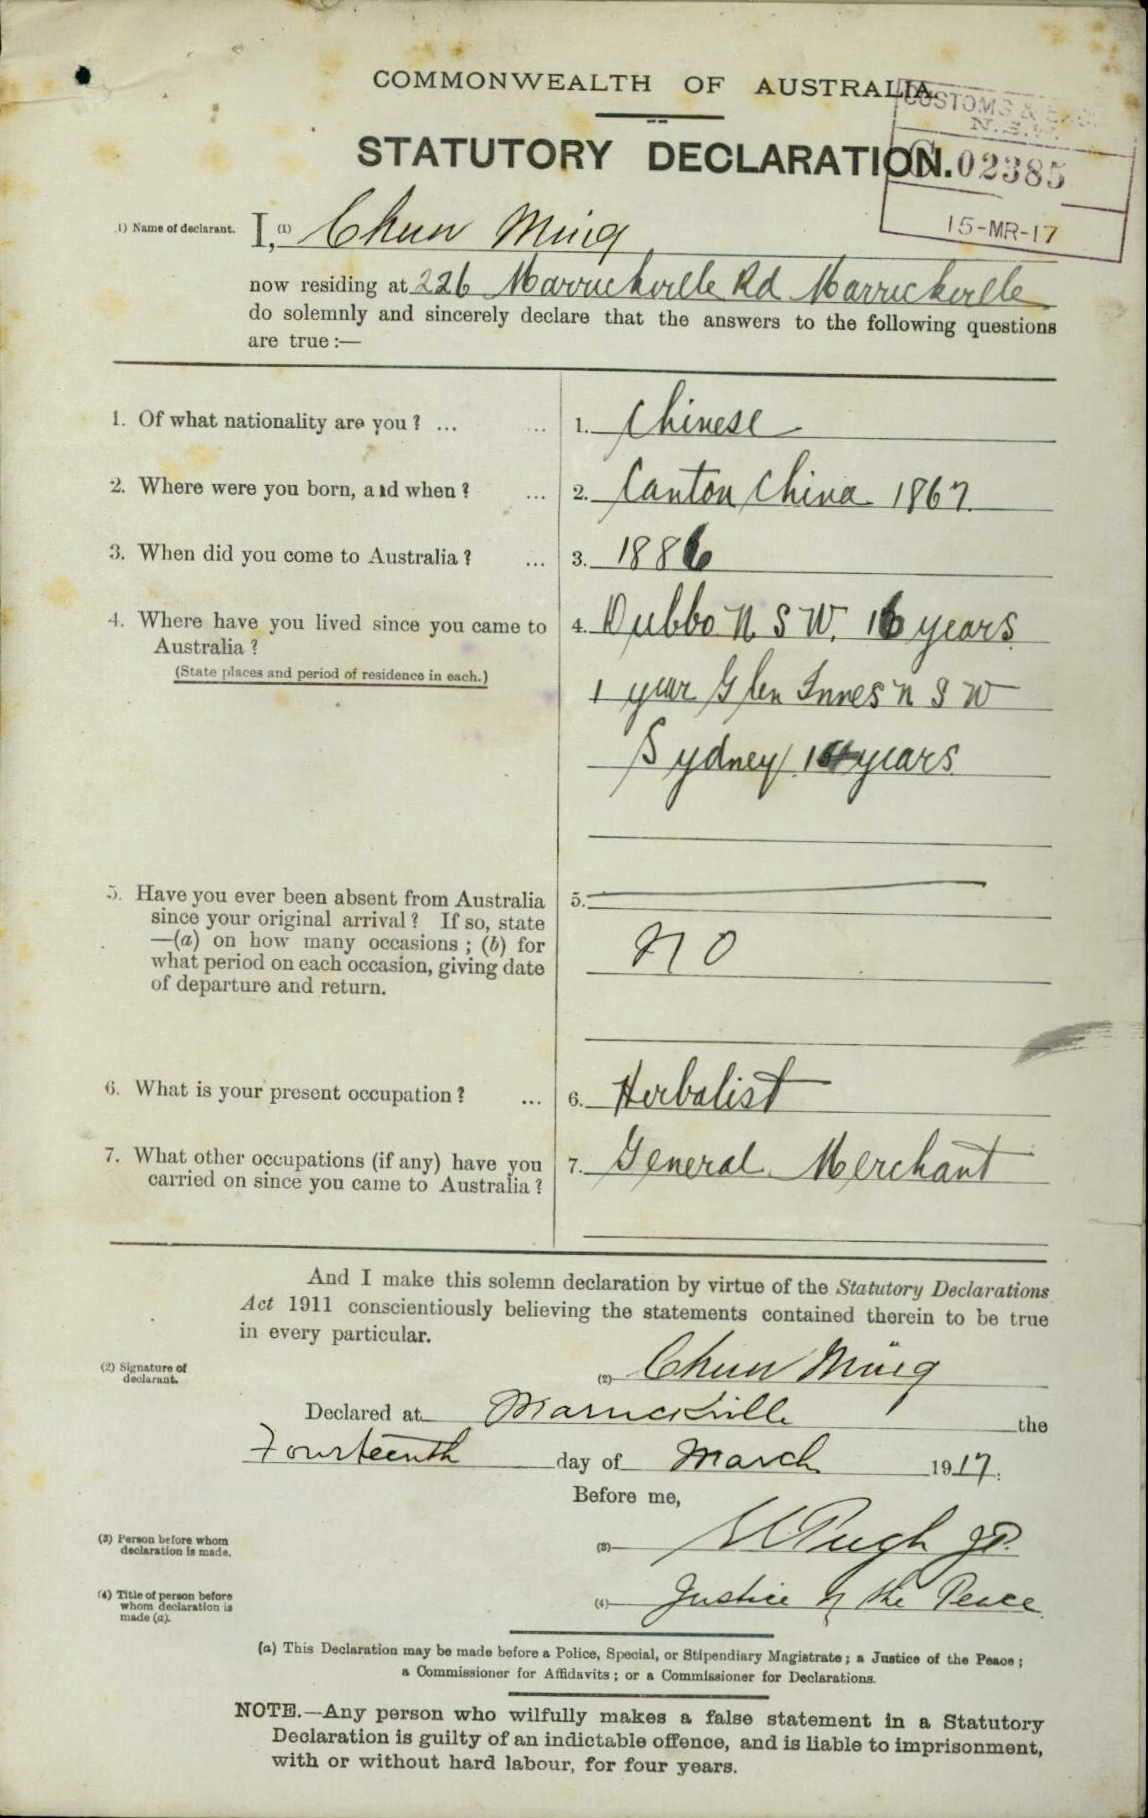 COMMONWEALTH OF AUSTRALIA
CUSTOMS & EXC
N.S.W.
STATUTORY DECLARATION.
C 02385
15-MR-17
1) Name of declarant. I, (1) Chun Ming
now residing at 226 Marrickville Rd Marrickville
do solemnly and sincerely declare that the answers to the following questions
are true :—
1. Of what nationality are you ? ... ... 1. Chinese
2. Where were you born, and when ? ... 2. Canton China 1867
3. When did you come to Australia ? ... 3. 1886
4. Where have you lived since you came to 4. Dubbo N S W. 16 years
Australia ?
(State places and period of residence in each.)
1 year Glen Innes N S W
Sydney 14 years
5. Have you ever been absent from Australia 5.
since your original arrival ? If so, state
—(a) on how many occasions ; (b) for NO
what period on each occasion, giving date
of departure and return.
6. What is your present occupation ? ... 6. Herbalist
7. What other occupations (if any) have you 7. General Merchant
carried on since you came to Australia ?
And I make this solemn declaration by virtue of the Statutory Declarations
Act 1911 conscientiously believing the statements contained therein to be true
in every particular.
(2) Signature of
declarant.
(2) Chun Ming
Declared at Marrickville the
Fourteenth day of March 1917.
Before me,
(3) Person before whom
declaration is made.
(3) Pugh JP.
(4) Title of person before
whom declaration is
made (a).
(4) Justice of the Peace
(a) This Declaration may be made before a Police, Special, or Stipendiary Magistrate ; a Justice of the Peace ;
a Commissioner for Affidavits ; or a Commissioner for Declarations.
NOTE.—Any person who wilfully makes a false statement in a Statutory
Declaration is guilty of an indictable offence, and is liable to imprisonment,
with or without hard labour, for four years.